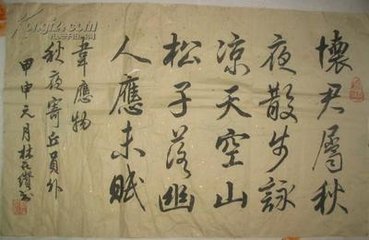 懷君屬秋
夜散步詠
凉天空山
松子落幽
人應未眠
韋應物
秋夜寄丘員外
甲申元月林